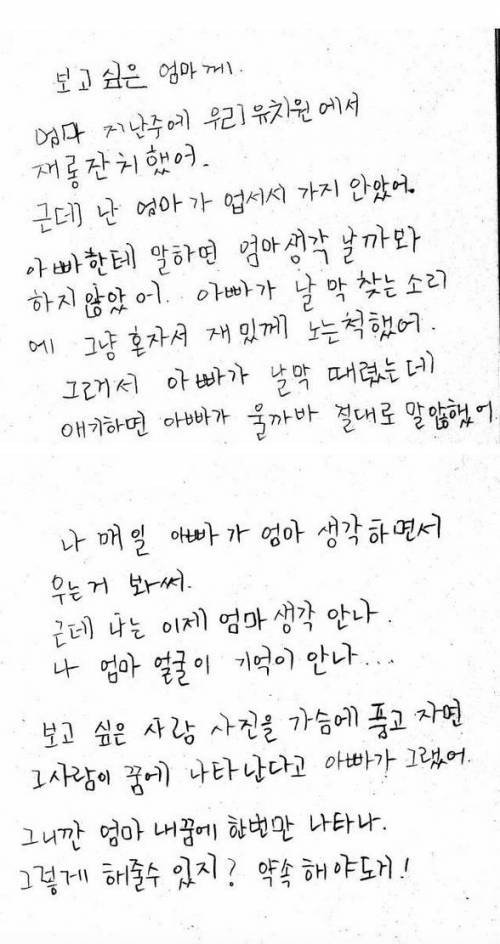 보고 싶은 엄마께.
엄마 지난주에 우리유치원에서
재롱잔치했어.
근데 난 엄마가 업서서 가지 안았어.
아빠한테 말하면 엄마생각 날까봐
하지 않았어. 아빠가 날 막 찾는 소리
에 그냥 혼자서 재밌게 노는척했어.
그러거서 아빠가 날막 때렸는데
얘기하면 아빠가 울까바 절대로 말않했어
나 매일 아빠가 엄마 생각하면서
우는거 봐써.
근데 나는 이제 엄마생각 안나.
나 엄마 얼굴이 기억이 안나...
보고 싶은 사람 사진을 가슴에 품고 자면
그사람이 꿈에 나타난다고 아빠가 그랬어.
그니깐 엄마 내꿈에 한번만 나타나.
그렇게 해줄수 있지? 약속해야도거!